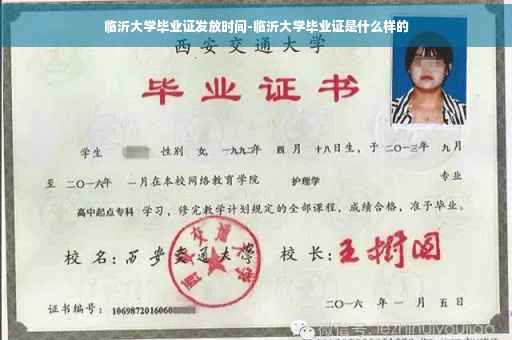 临沂大学毕业证发放时间-临沂大学毕业证是什么样的
西安交通大学
毕业证书
学生 性别 女,一九九二年 四 月 十八日生,于二〇一三年 九月
至 二〇一六年 一月在本校网络教育学院 护理学 专业
高中起点专科 学习,修完教学计划规定的全部课程,成绩合格,准予毕业。
校 名:西安交通大学 校 长:王树国
西安交通大学
证书编号:1069872016060
二〇一六 年 一 月 五 日
微信号:jezhinuiyoujiao